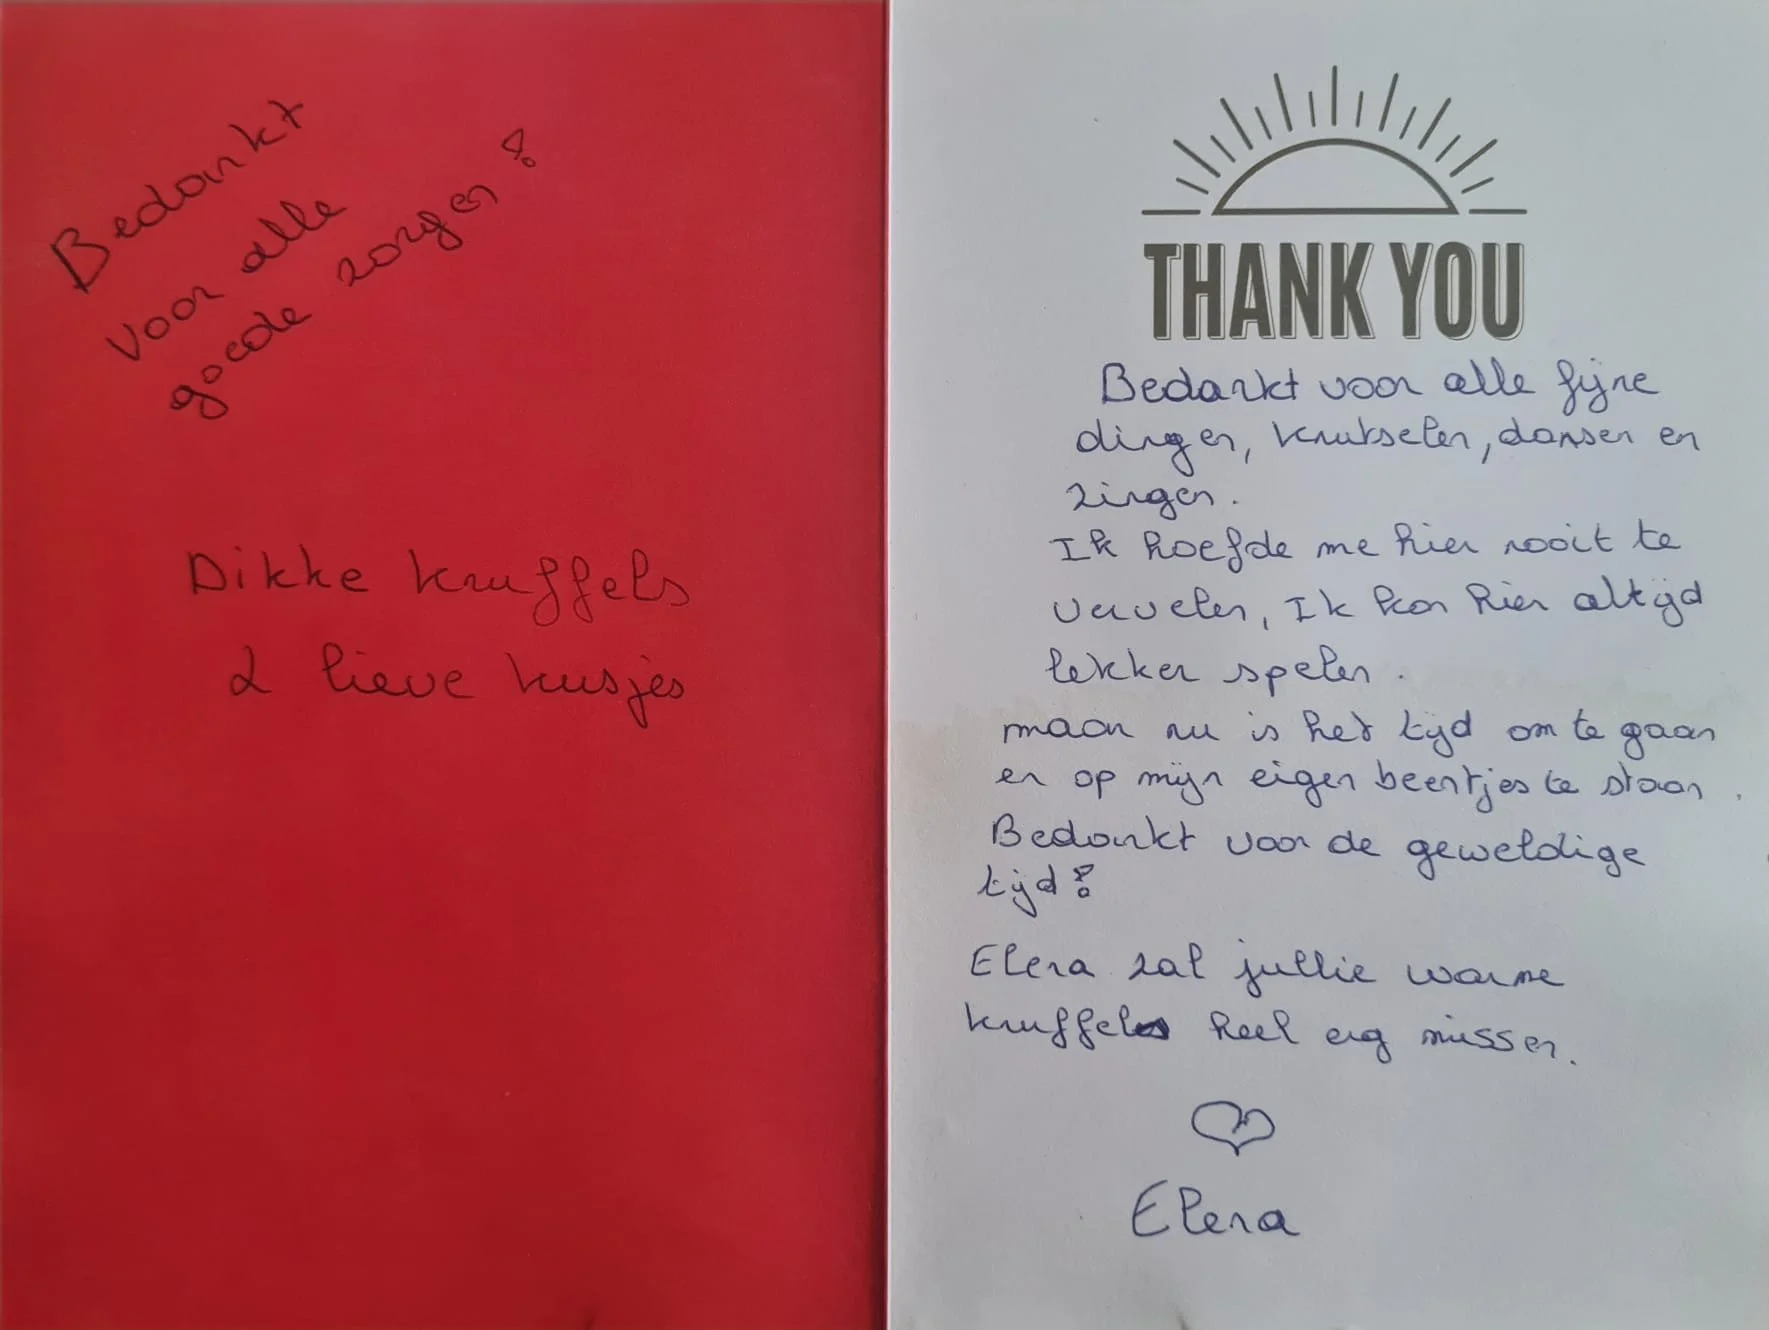 Bedankt
voor alle
goede zorgen!
Dikke knuffels
& lieve kusjes
THANK YOU
Bedankt voor alle fijne
dingen, knutselen, dansen en
zingen.
Ik hoefde me hier nooit te
vervelen, Ik kon hier altijd
lekker spelen.
maar nu is het tijd om te gaan
en op mijn eigen beentjes te staan.
Bedankt voor de geweldige
tijd!
Elena zal jullie warme
knuffels heel erg missen.
Elena